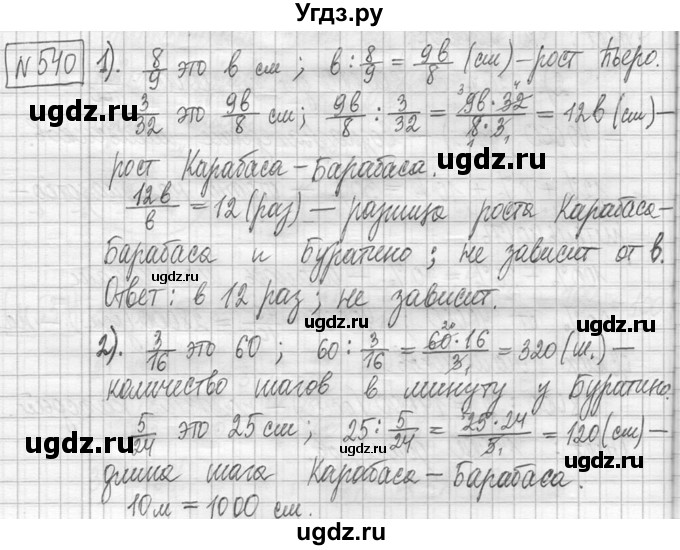 Угдз.ру
№540 1). 8/9 это в см; в : 8/9 = 9в/8 (см) – рост Пьеро.
3/32 это 9в/8 см; 9в/8 : 3/32 = 9в · 32/8 · 3 = 12в (см) –
рост Карабаса – Барабаса.
12в/в = 12 (раз) – разница роста Карабаса-
Барабаса и Буратино; не зависит от в.
Ответ: в 12 раз; не зависит.
2). 3/16 это 60; 60 : 3/16 = 60 · 16/3 = 320 (ш.) –
количество шагов в минуту у Буратино.
5/24 это 25 см; 25 : 5/24 = 25 · 24/5 = 120 (см) –
длина шага Карабаса – Барабаса.
10м = 1000 см.
ugdz.ru
ugdz.ru
ugdz.ru
ugdz.ru
ugdz.ru
ugdz.ru
ugdz.ru
ugdz.ru
ugdz.ru
ugdz.ru
ugdz.ru
ugdz.ru
ugdz.ru
ugdz.ru